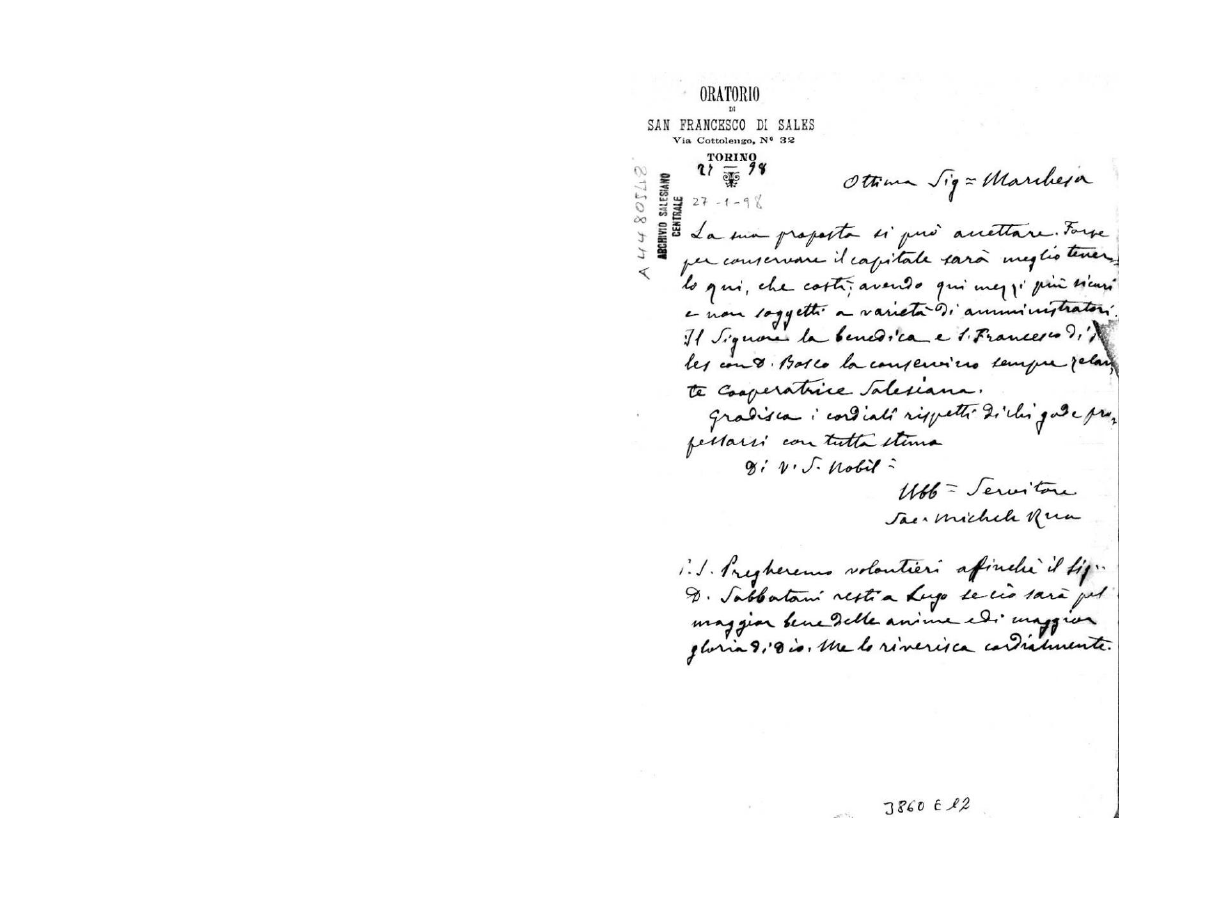 ORATORIO
DI
SAN FRANCESCO DI SALES
Via Cottolengo, N° 32
TORINO
27 98
27-1-98
A 4480548
ARCHIVIO SALESIANO
CENTRALE
Ottima Sig= Marchesa
La sua proposta si può accettare. Forse
per conservare il capitale sarà meglio tener-
lo qui, che costì, avendo qui mezzi più sicuri
e non soggetti a varietà di amministratori.
Il Signore la benedica e S. Francesco di
les con D. Bosco la conservino sempre zelan-
te Cooperatrice Salesiana.
Gradisca i cordiali rispetti di chi gode pro-
fessarsi con tutta stima
Di V. S. Nobil=
Obb= Servitore
Sac. Michele Rua
P.S. Pregheremo volontieri affinchè il Sig.
D. Sabbatani resti a Lugo se ciò sarà pel
maggior bene delle anime e di maggior
gloria di Dio. Me lo riverisca cordialmente.
3860 E 12